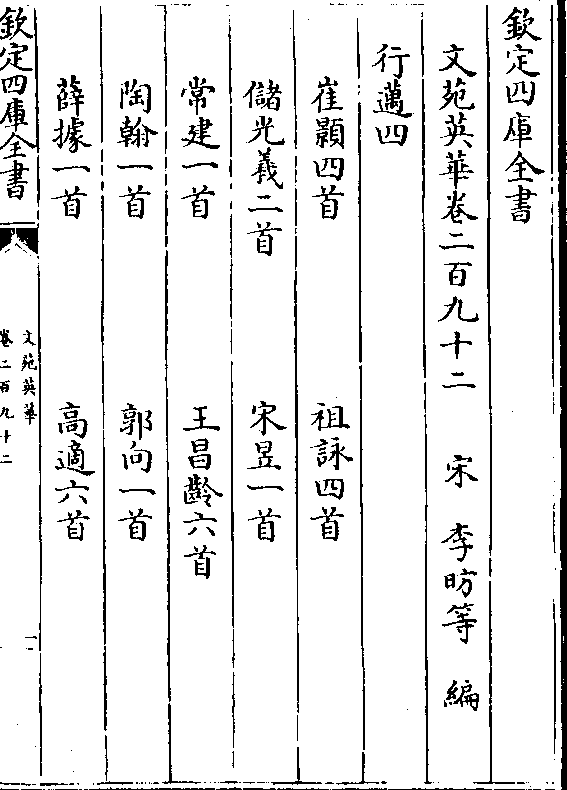 欽定四庫全書
文苑英華卷二百九十二　宋　李昉等　編
行邁四
崔顥四首　祖詠四首
儲光羲二首　宋昱一首
常建一首　王昌齡六首
陶翰一首　郭向一首
薛據一首　高適六首
欽定四庫全書
文苑英華
卷二百九十二
一